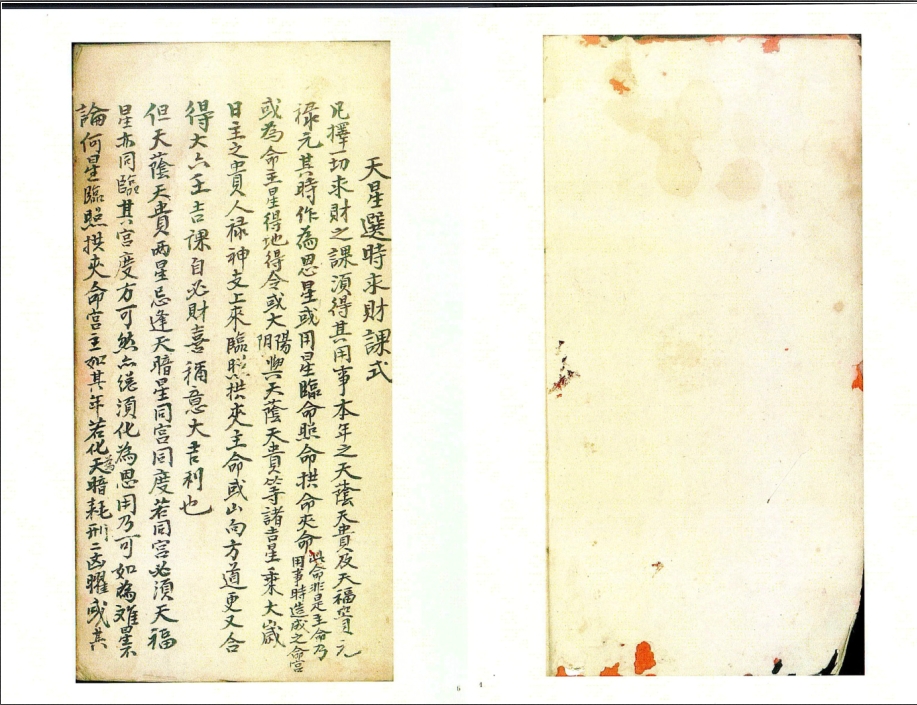 天星選時求財課式
凡擇一切求財之課須得其用事本年之天蔭天貴及天福官元
祿元其時作為恩星或用星臨命照命拱命夾命此命非是主命乃用事時造成之命宮
或為命主星得地得令或太陽太陰與天蔭天貴等諸吉星乘太歲
日主之貴人祿神支上來臨照拱夾主命或山向方道更又合
得大六壬吉課自必財喜稱意大吉利也
但天蔭天貴兩星忌逢天暗星同宮同度若同宮必須天福
星亦同臨其宮度方可然亦須化為恩用乃可如為難星不
論何星臨照拱夾命宮主如其年若化為天暗耗刑二凶曜或其
6 4